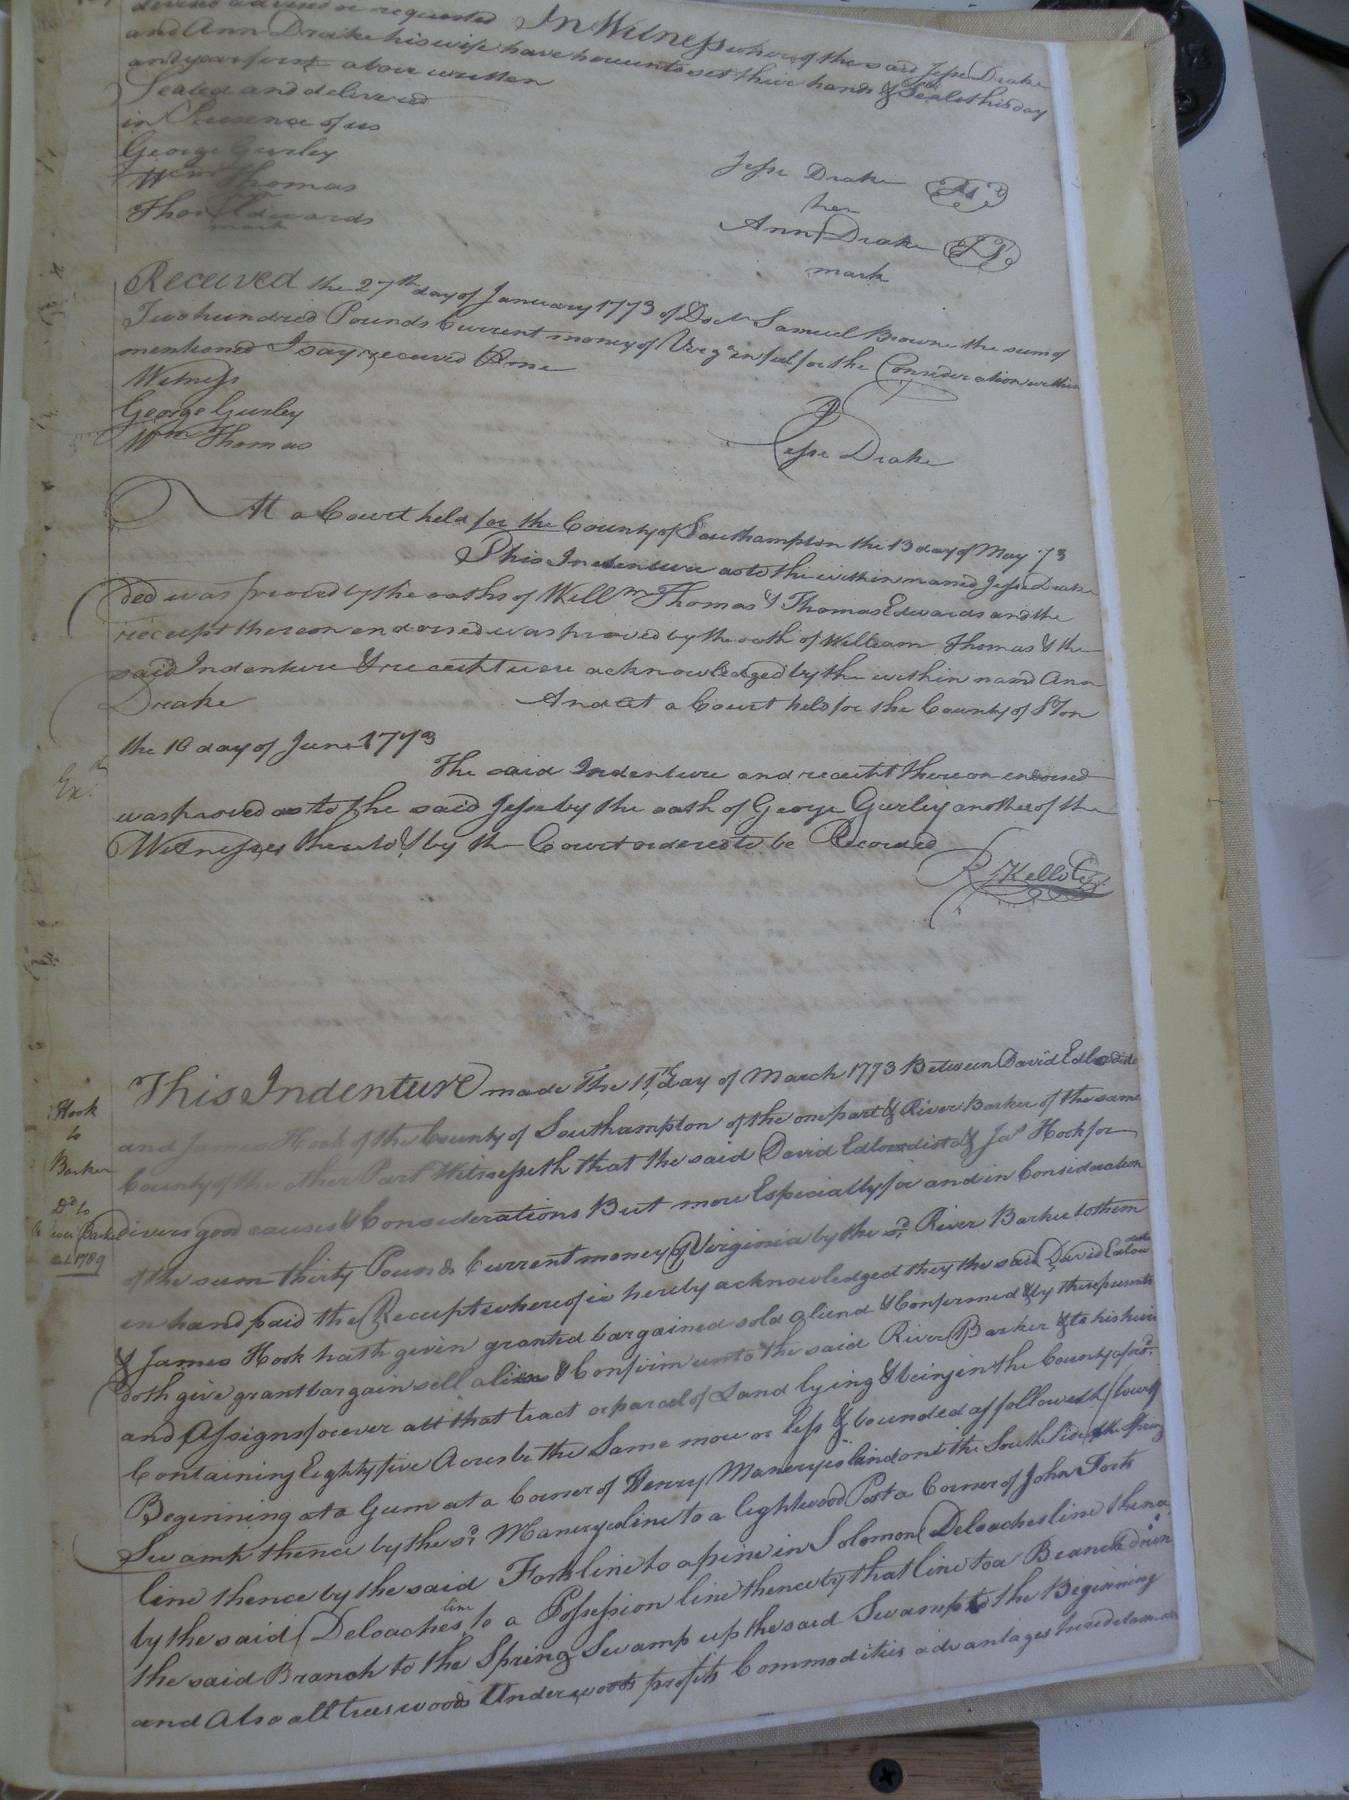 devised advised or requested In Witness whereof the said Jesse Drake
and Ann Drake his wife have hereunto set their hands & Seals this day
and year first above written
Sealed and delivered
in Presence of us
George Gurley
Wm Thomas
Thos Edwards
mark
Jesse Drake
her
Ann Drake
mark
Received the 27th day of January 1773 of Doctr Samuel Browne the sum of
Two hundred Pounds Current money of Virga in full for the Consideration within
mentioned I say received P me
Witness
George Gurley
Wm Thomas
Jesse Drake
At a Court held for the County of Southampton the 13 day of May 73
This Indenture as to the within named Jesse Drake
ded was proved by the oaths of Willm Thomas & Thomas Edwards and the
receipt thereon endorsed was proved by the oath of William Thomas & the
said Indenture & receipt were acknowledged by the within namd Ann
Drake And at a Court held for the County of S'ton
the 10 day of June 1773
The said Indenture and receipt thereon endorsed
was proved as to the said Jesse by the oath of George Gurley another of the
Witnesses thereto & by the Court ordered to be Recorded
Exd
R Kello
Hook
to
Barker
Dd to
Barker
1789
This Indenture made The 11th day of March 1773 Between David Edloe
and James Hook of the County of Southampton of the one part & River Barker of the same
County of the other Part Witnesseth that the said David & Jas Hook for
divers good causes & Considerations But more Especially for and in Consideration
of the sum thirty Pounds Current money of Virginia by the sd River Barker to them
in hand paid the Receipt whereof is hereby acknowledged they the said David
& James Hook hath given granted bargained sold aliend & Confirmed & by these presents
doth give grant bargain sell alien & Confirm unto the said River Barker & to his heirs
and Assigns forever all that tract or parcel of Land lying & being in the County aforsd
Containing Eighty five Acres be the Same more or less & bounded as followeth
Beginning at a Gum at a Corner of Henry Manerys land on the South Side of the Spring
Swamp thence by the sd Manerys line to a lightwood Post a Corner of John Forts
line thence by the said Forts line to a pine in Solomon Deloaches line thence
by the said Deloaches line to a Possession line thence by that line to a Branch down
the said Branch to the Spring Swamp up the said Swamp to the Beginning
and Also all trees woods Underwoods profits Commodities advantages